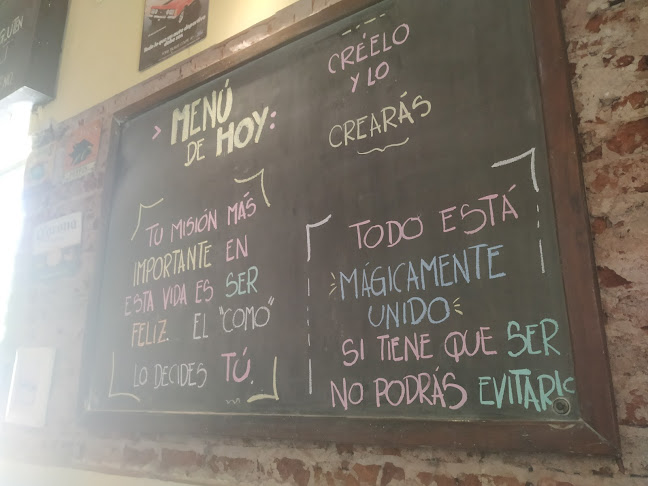 > MENÚ
DE HOY:
CRÉELO
Y LO
CREARÁS
TU MISIÓN MÁS
IMPORTANTE EN
ESTA VIDA ES SER
FELIZ. EL "COMO"
LO DECIDES TÚ.
TODO ESTÁ
MÁGICAMENTE
UNIDO
SI TIENE QUE SER
NO PODRÁS EVITARLO